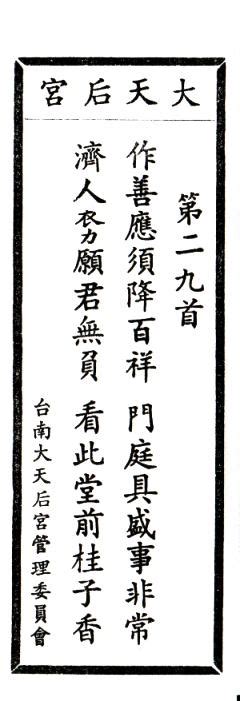 大天后宮
第二九首
作善應須降百祥　門庭具盛事非常
濟人衣力願君無負　看此堂前桂子香
台南大天后宮管理委員會